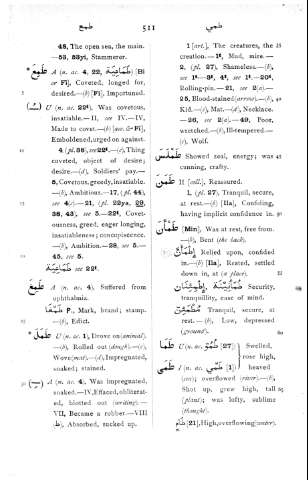 طمع 511 طبي
48, The open sea, the main.
—53, 53yi, Stammerer.
* طمع A (n. ac. 4, 22, طماعية) [Bi
or Fi], Coveted, longed for,
desired.—(b) [Fi], Importuned.
U (n. ac. 22t), Was covetous,
insatiable.—II, see IV.—IV,
Made to covet.—(b) [acc. & Fi],
Emboldened, urged on against.
4 (pl. 38), see 22t.—(c), Thing
coveted, object of desire;
desire.—(d), Soldiers' pay.—
5, Covetous, greedy, insatiable.
—(b), Ambitious.—
see 4(c).—21,
38, 43), see 5.—22t, Covet-
ousness, greed, eager longing,
insatiableness; concupiscence.
—(b), Ambition.—28, see 5.—
45, see 5.
طماعية see 22t.
A (n. ac. 4), Suffered from
ophthalmia.
P., Mark, brand; stamp.
—(b), Edict.
U (n. ac. 1), Drove on (animal).
—(b), Rolled out (dough).—(c),
Wove (mat).—(d), Impregnated,
soaked; stained.
A (n. ac. 4), Was impregnated,
soaked.—IV, Effaced, obliterat-
ed, blotted out (writing).—
VII, Became a robber.—VIII
Absorbed, sucked up.
1 [art.], The creatures, the
creation.—1t, Mud, mire.—
2, (pl. 27), Shameless.—(b),
Rolling-pin.—21, see 2(a).—
25, Blood-stained (arrow).—(b),
Kid.—Mat.—(d), Necklace.
—26, see 2(a).—49, Poor,
wretched.—(b), Ill-tempered—
(c), Wolf.
Showed zeal, energy; was
cunning, crafty.
طمن II [coll.], Reassured.
1, (pl. 27), Tranquil, secure,
at rest.—(b) [Ila], Confiding,
having implicit confidence in.
[Min], Was at rest, free from.
—(b), Bent (the back).
Relied upon, confided
in.—(b) [Ila], Rested, settled
down in, at (a place).
Security,
tranquility, ease of mind.
Tranquil, secure, at
rest.—(b), Low, depressed
(ground).
U (n. ac. [27]) Swelled,
rose high,
I (n. ac. [1]) heaved
(sea); overflowed (river).—(b),
Shot up, grew high, tall
(plant); was lofty, sublime
(thought).
[21], High, overflowing (water)